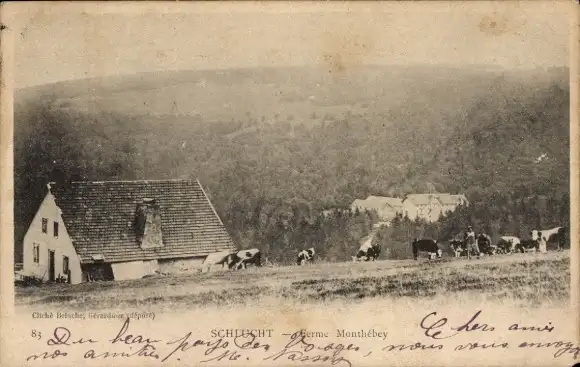 Cliché Homeyer, Gérardmer (déposé)
83 SCHLUCHT — Ferme Monthébey
Chers amis
Du beau pays des Vosges, nous vous envoyons
nos amitiés